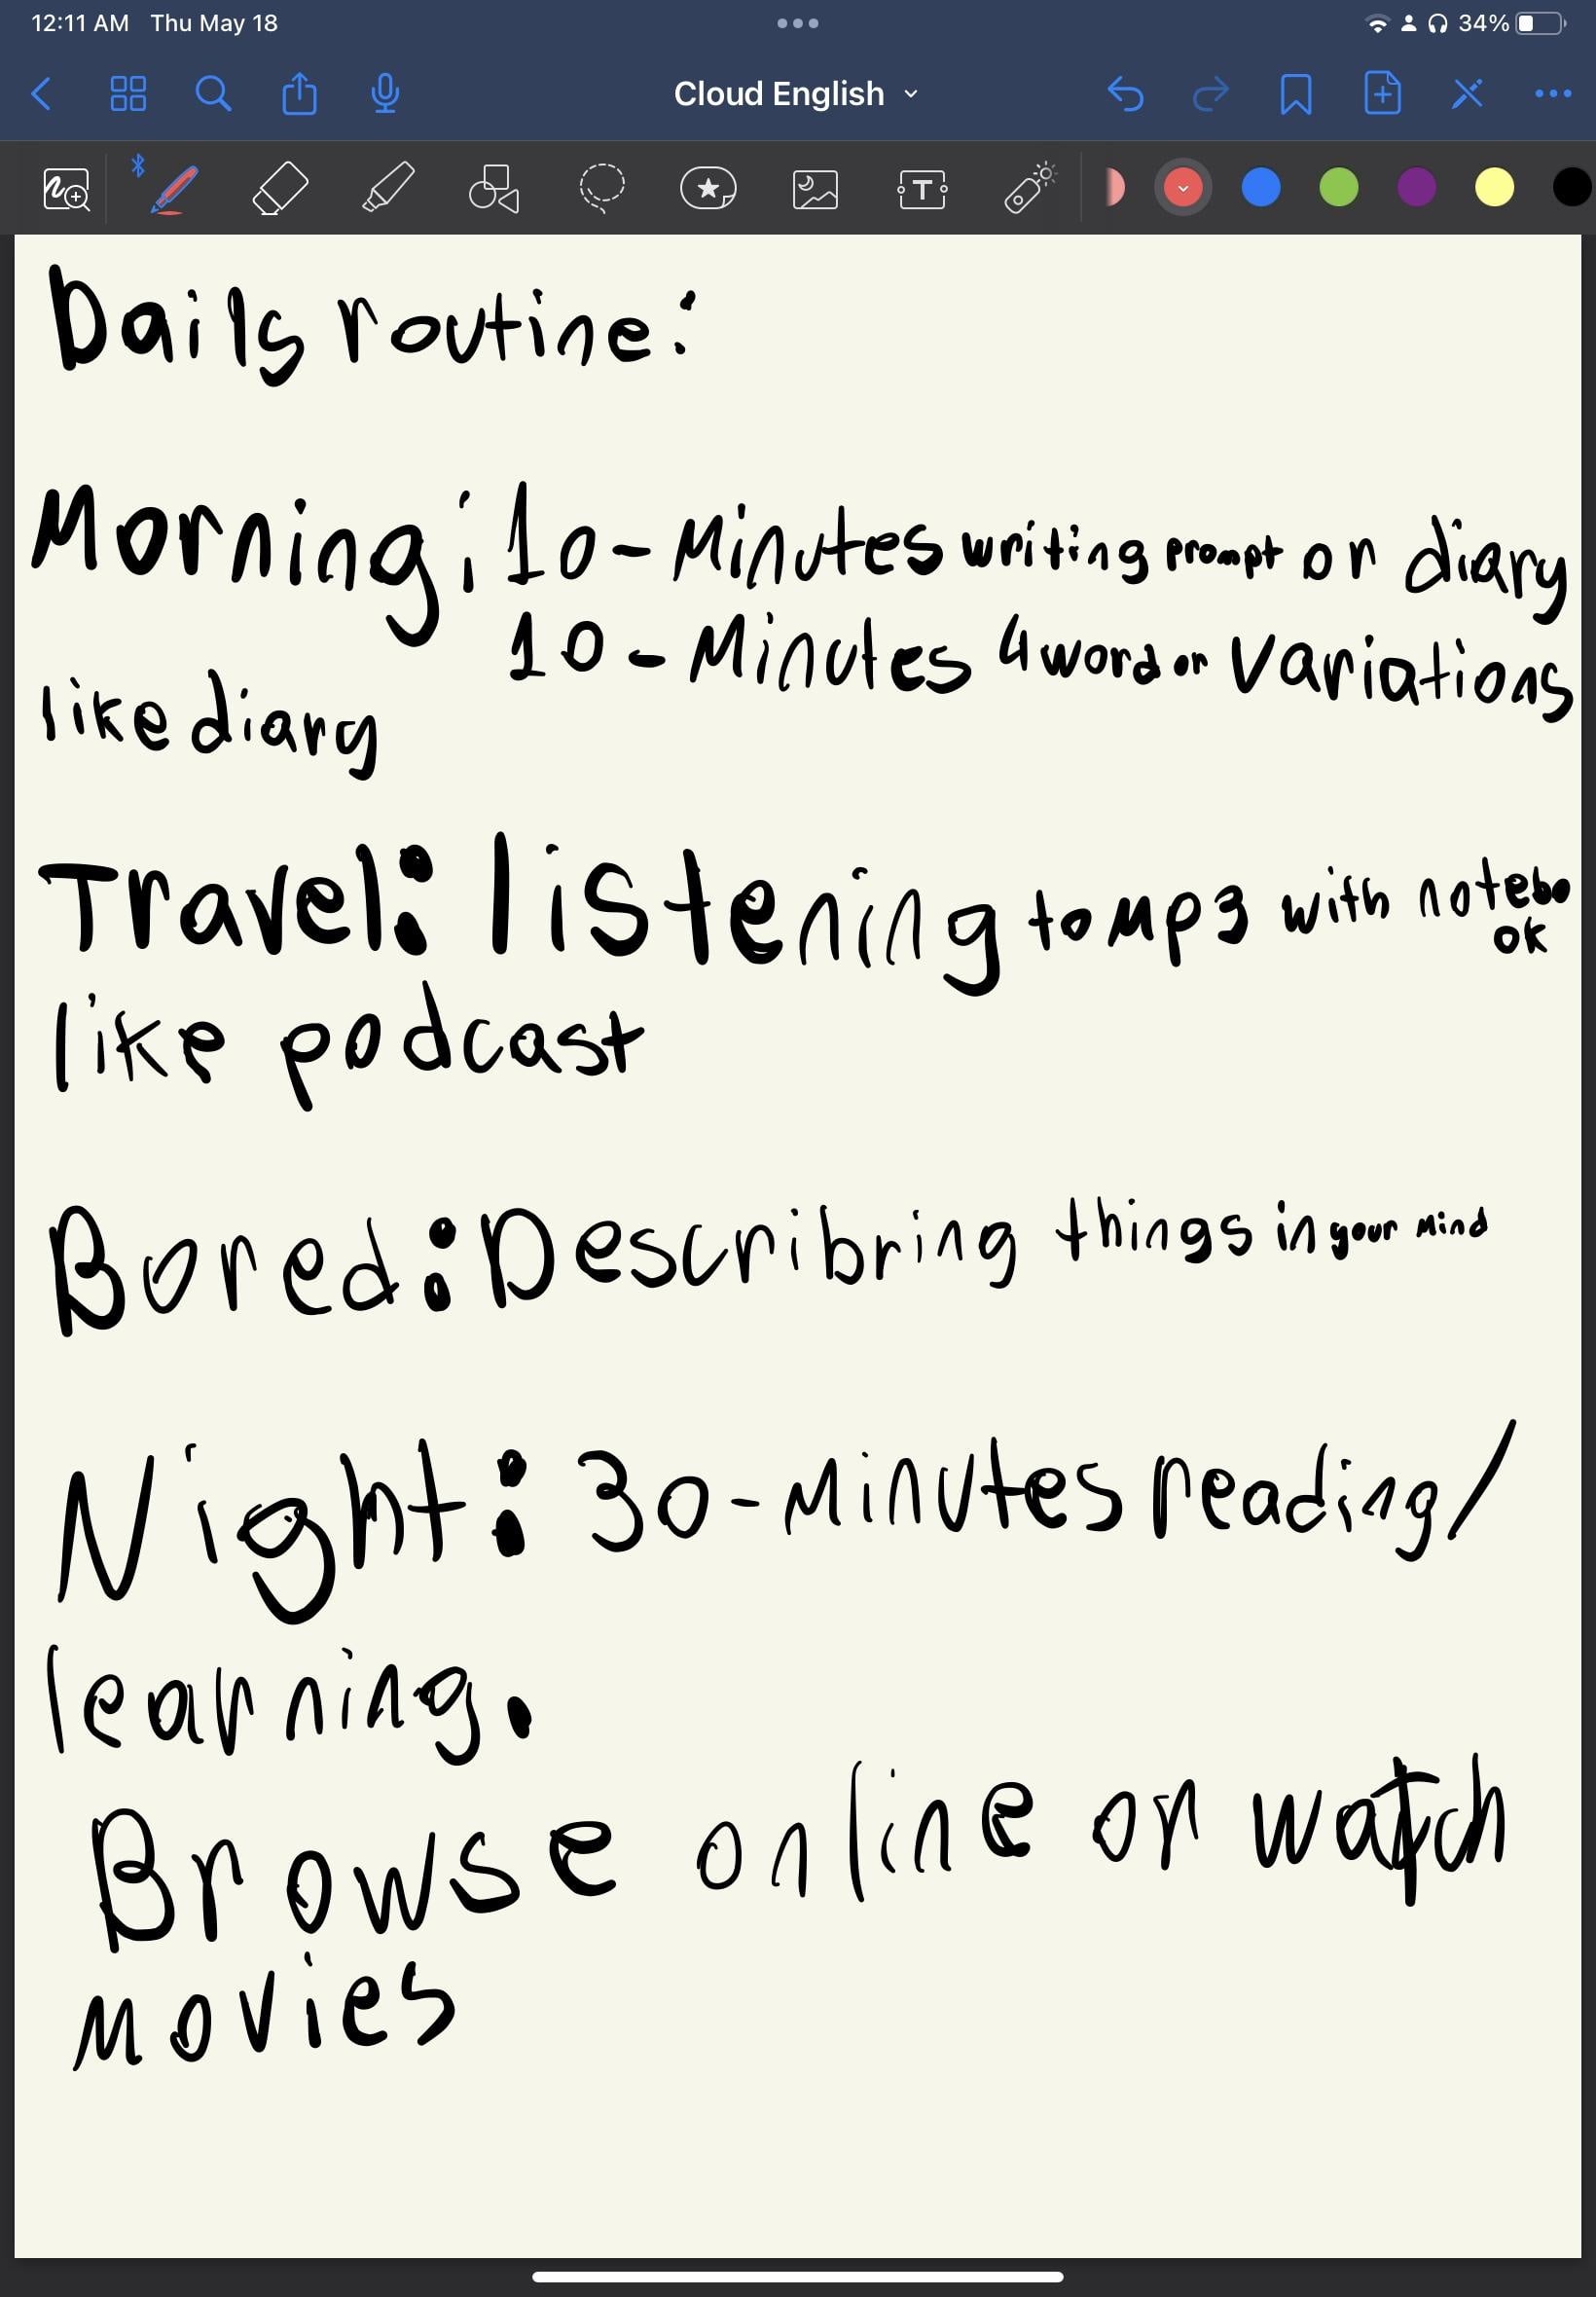 12:11 AM Thu May 18
34%
Cloud English
Daily routine:
Morning: 10-Minutes writing prompt or diary
10-Minutes 4 word or variations
like diary
Travel: listening to mp3 with notebo
ok
like podcast
Bored: Describring things in your mind
Night: 30-Minutes reading/
learning.
Browse online or watch
movies